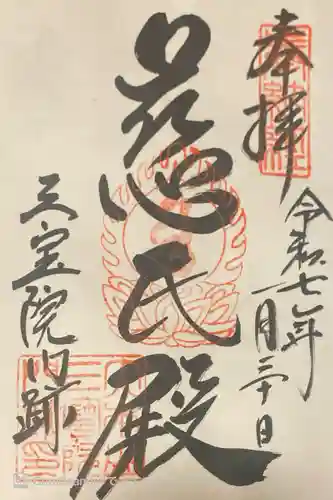 奉拝
令和七年一月三十日
慈氏殿
三宝院門跡